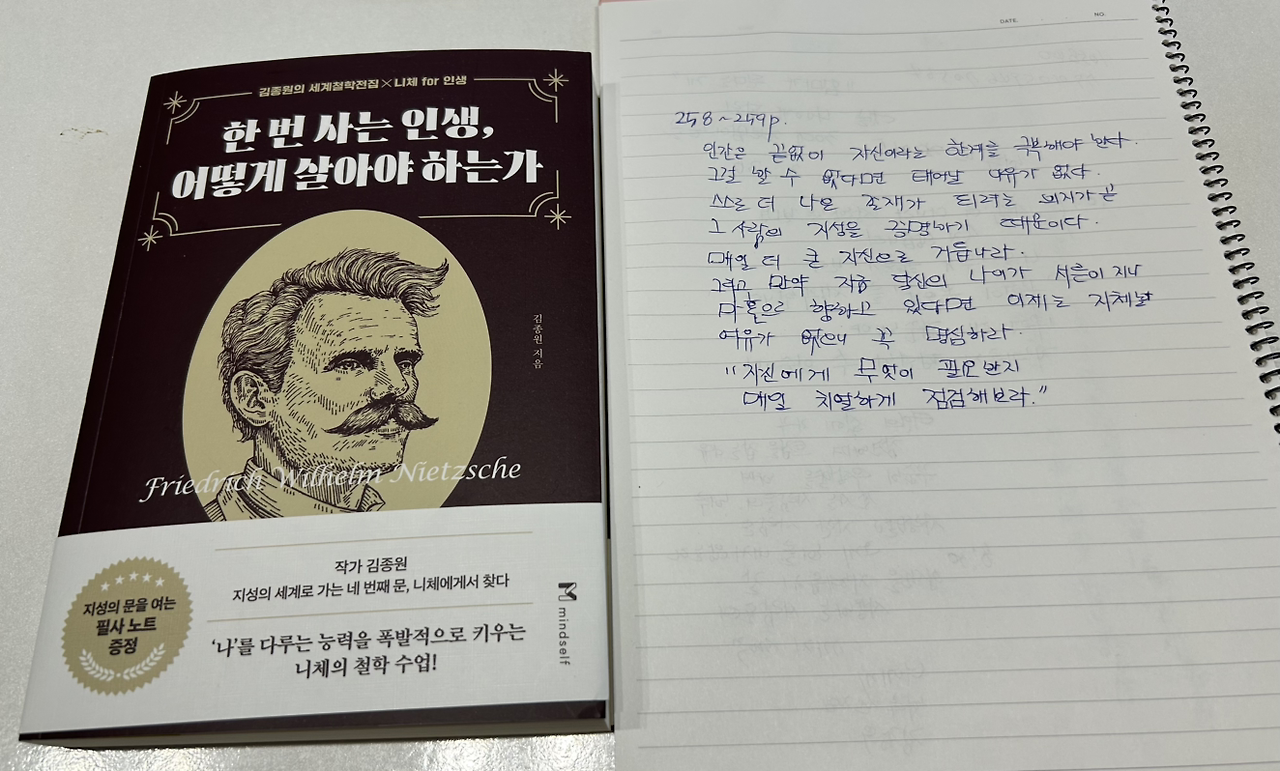 김종원의 세계철학전집×니체 for 인생
한 번 사는 인생,
어떻게 살아야 하는가
김종원 지음
Friedrich Wilhelm Nietzsche
작가 김종원
지성의 세계로 가는 네 번째 문, 니체에게서 찾다
‘나’를 다루는 능력을 폭발적으로 키우는
니체의 철학 수업!
지성의 문을 여는
필사 노트
증정
mindself
DATE. NO.
258~259p.
인간은 끝없이 자신이라는 한계를 극복해야 한다.
그럴 수 없다면 태어날 이유가 없다.
스스로 더 나은 존재가 되려는 의지가 곧
그 사람의 지성을 증명하기 때문이다.
매일 더 큰 자신으로 거듭나라.
그리고 만약 지금 당신의 나이가 서른이 지나
마흔으로 향하고 있다면 이제는 지체할
여유가 없으니 꼭 명심하라.
"자신에게 무엇이 필요한지
매일 치열하게 점검해보라."